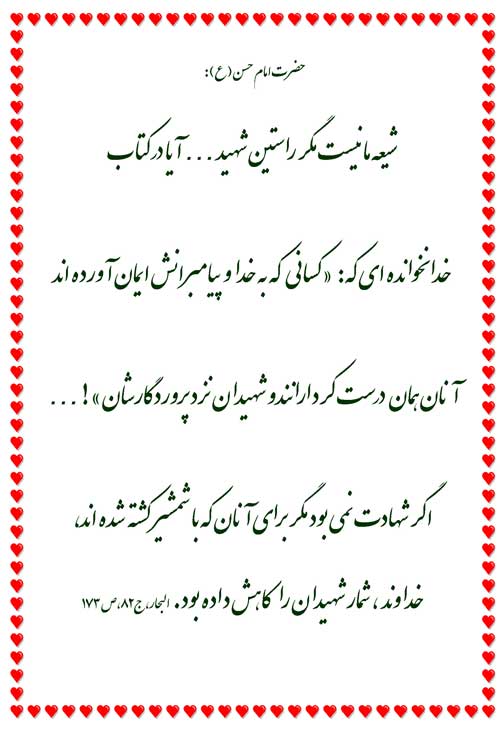 حضرت امام حسن (ع):
شیعه ما نیست مگر راستین شهید ... آیا در کتاب
خدا نخوانده ای که: «کسانی که به خدا و پیامبرانش ایمان آورده اند
آنان همان درست کردارانند و شهیدان نزد پروردگارشان»! ...
اگر شهادت نمی بود مگر برای آنان که با شمشیر کشته شده اند،
خداوند، شمار شهیدان را کاهش داده بود. البحار، ج۸۲، ص۱۷۳